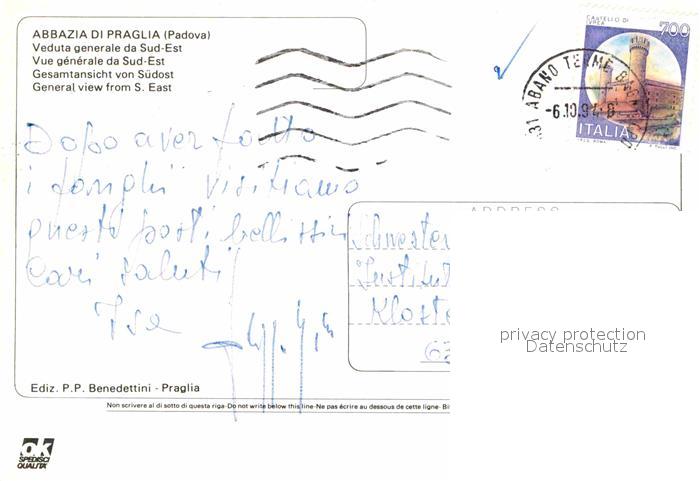 ABBAZIA DI PRAGLIA (Padova)
Veduta generale da Sud-Est
Vue générale da Sud-Est
Gesamtansicht von Südost
General view from S. East
CASTELLO DI
IVREA
700
ITALIA
ABANO TERME
-6.10.94-8
Dopo aver fatto
i fanghi visitiamo
questi posti bellissimi
Cari saluti
Isa
ADDRESS
Schwester
Institut
Kloste
privacy protection
Datenschutz
Ediz. P.P. Benedettini - Praglia
Non scrivere al di sotto di questa riga-Do not write below this line-Ne pas écrire au dessous de cette ligne-Bit
ok
SPEDISCI
QUALITÀ